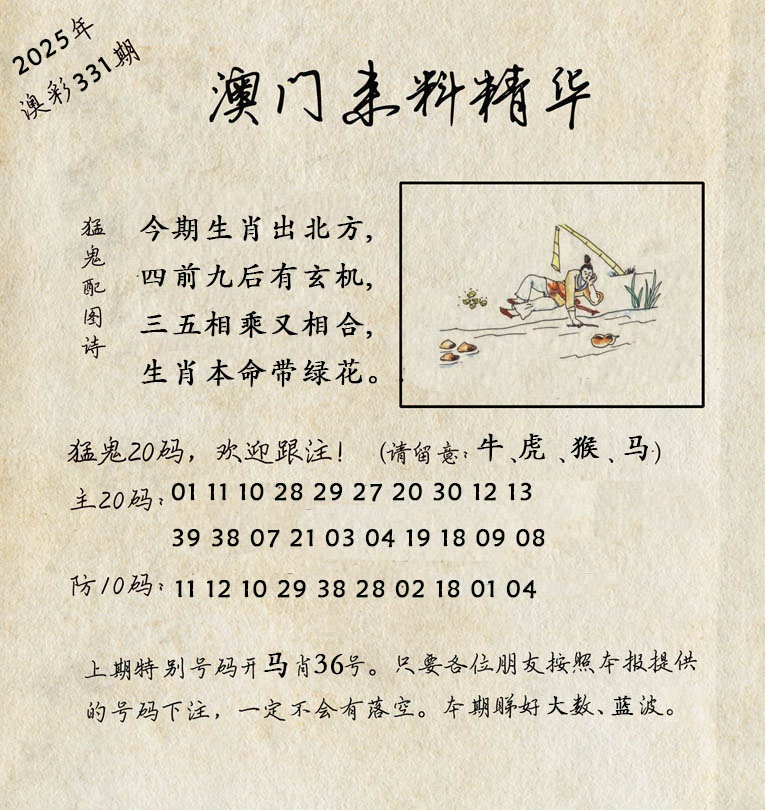 2025年
澳彩331期
澳门来料精华
猛鬼配图诗
今期生肖出北方，
四前九后有玄机，
三五相乘又相合，
生肖本命带绿花。
猛鬼20码，欢迎跟注！（请留意：牛、虎、猴、马）
主20码：01 11 10 28 29 27 20 30 12 13
39 38 07 21 03 04 19 18 09 08
防10码：11 12 10 29 38 28 02 18 01 04
上期特别号码开马肖36号。只要各位朋友按照本报提供
的号码下注，一定不会有落空。本期睇好大数、蓝波。